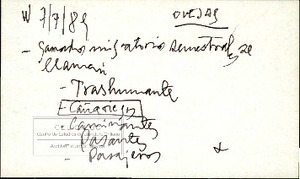 W 7/7/89 OVEJAS
- ganado migratorio semestral se
llaman
- Trashumante
- Cañariegas
Caminantes
Pasantes
- Pasajeros